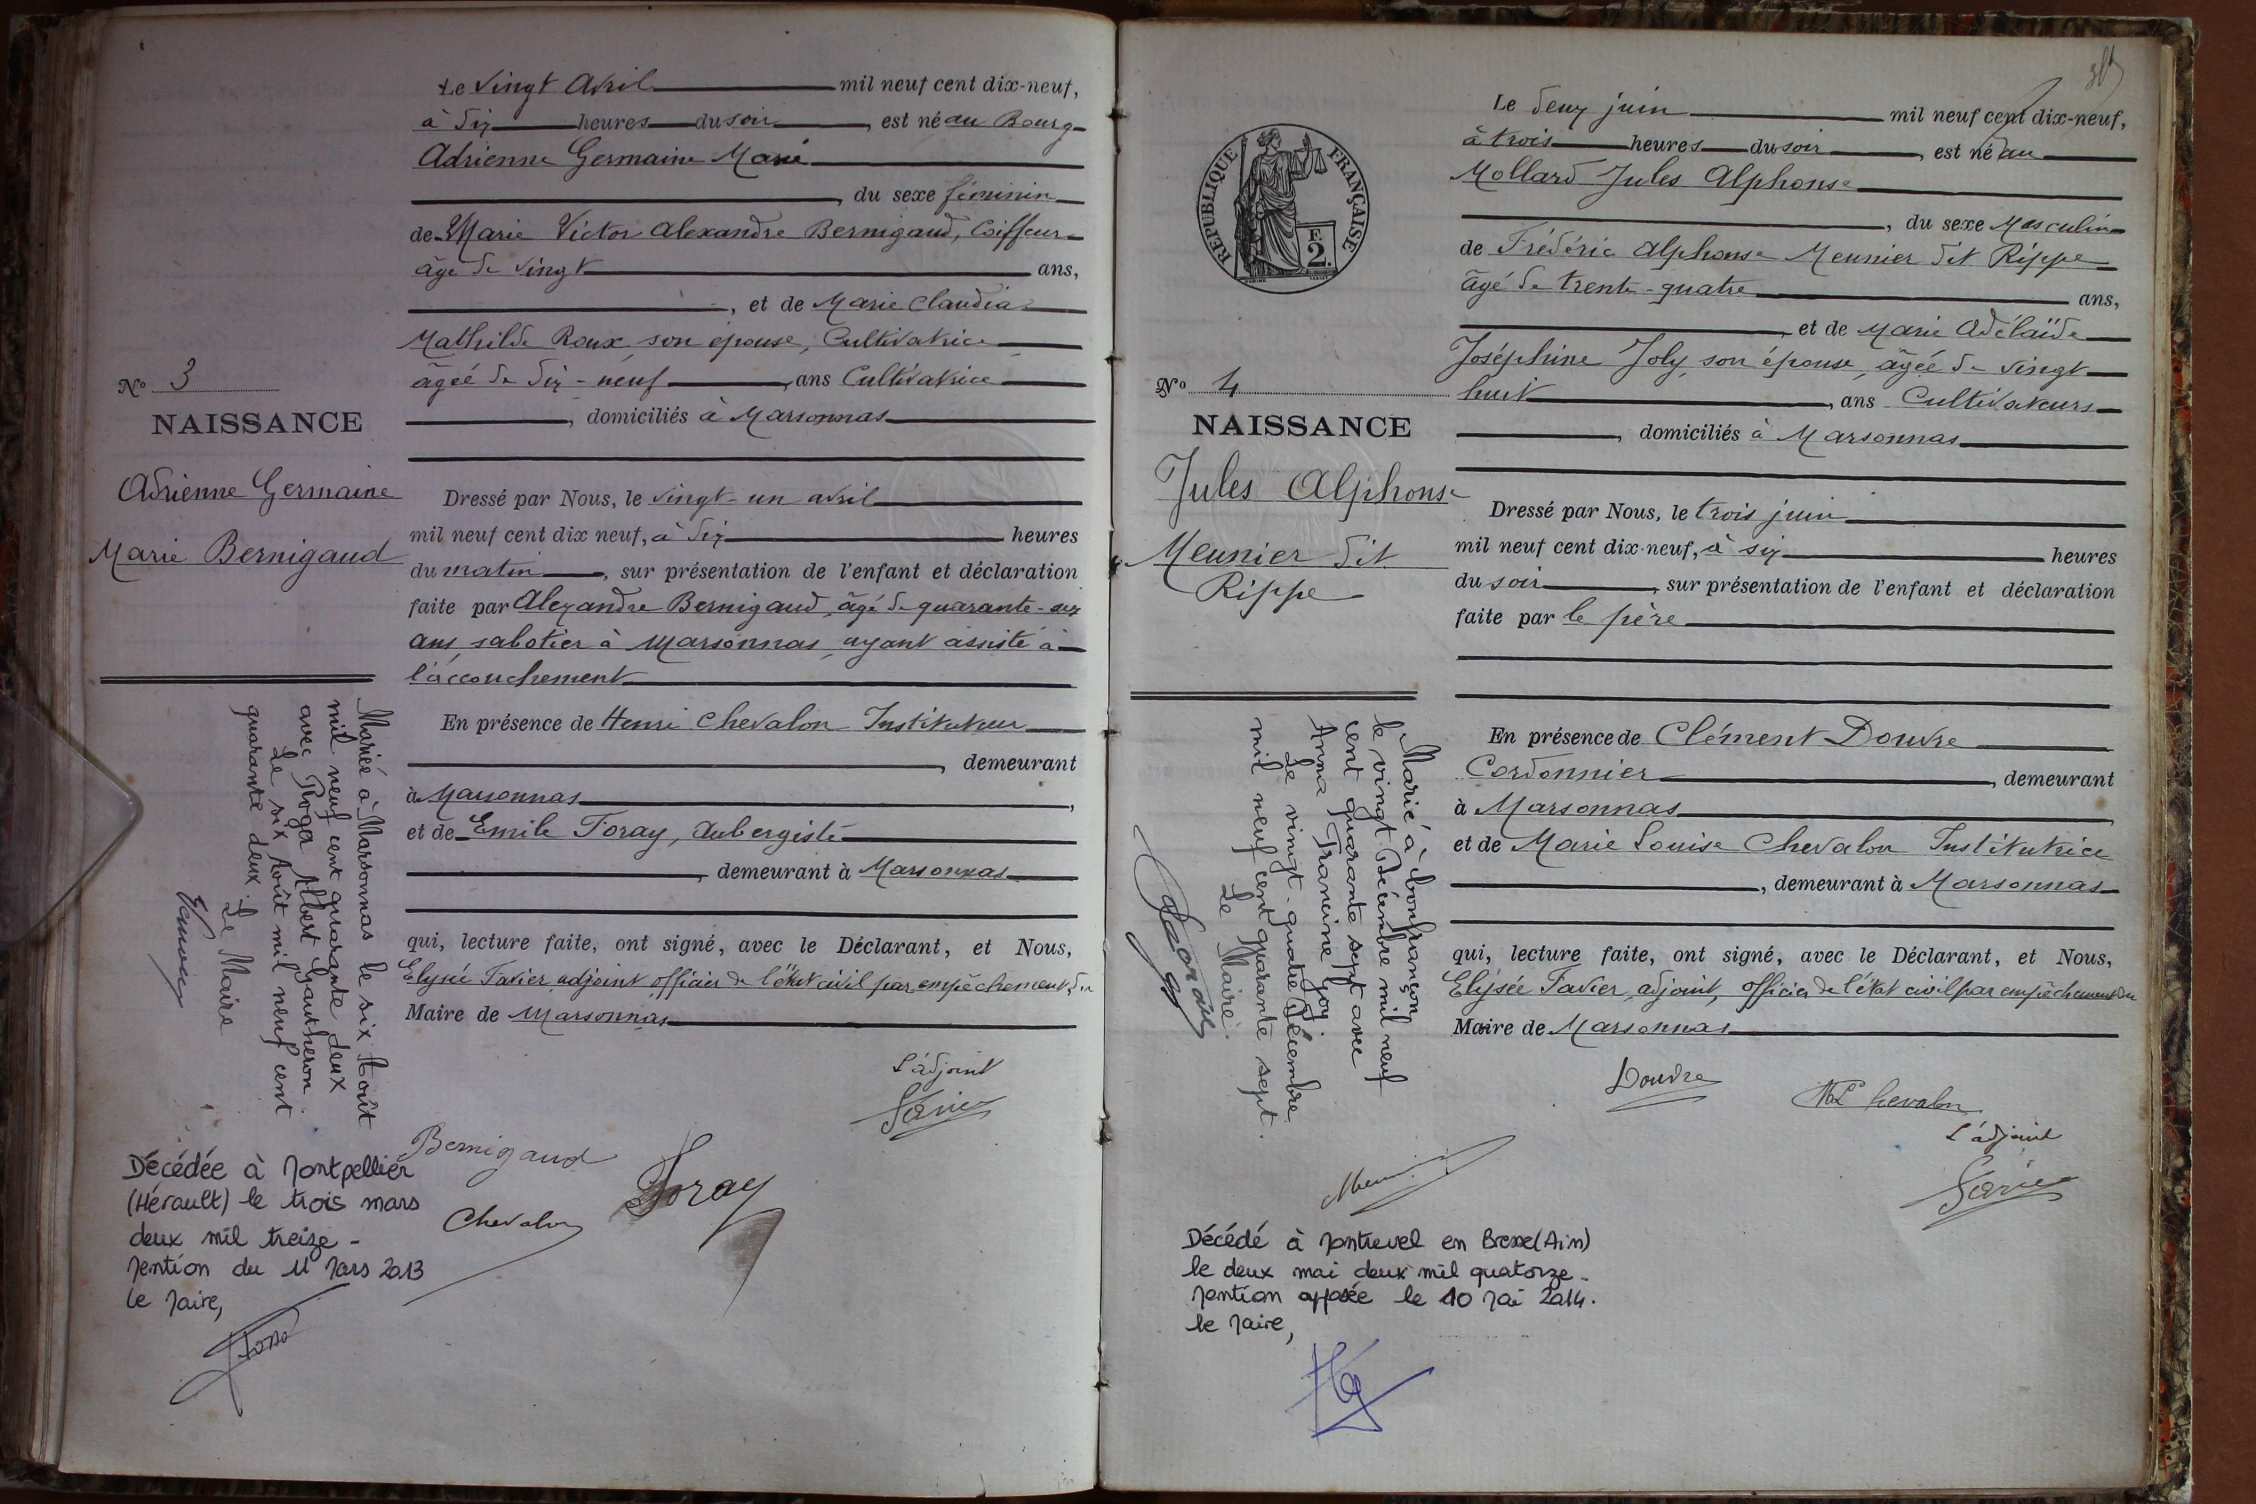 Le vingt avril mil neuf cent dix-neuf,
à dix heures du soir, est né au Bourg
Adrienne Germaine Marie
, du sexe féminin
de Marie Victor Alexandre Bernigaud, Coiffeur
âgé de vingt ans,
, et de Marie Claudia
Mathilde Roux, son épouse, Cultivatrice
âgéé de dix-neuf, ans Cultivatrice
, domiciliés à Marsonnas
No 3
NAISSANCE
Adrienne Germaine
Marie Bernigaud
Dressé par Nous, le vingt-un avril
mil neuf cent dix neuf, à dix heures
du matin, sur présentation de l'enfant et déclaration
faite par Alexandre Bernigaud, âgé de quarante-six
ans, sabotier à Marsonnas, ayant assisté à
l'accouchement
En présence de Henri Chevalon Instituteur
, demeurant
à Marsonnas,
et de Emile Foray, aubergiste
, demeurant à Marsonnas
qui, lecture faite, ont signé, avec le Déclarant, et Nous,
Elysée Favier, adjoint, officier de l'état civil par empêchement du
Maire de Marsonnas
L'adjoint
Favier
Bernigaud
Foray
Chevalon
Mariée à Marsonnas le six Août
mil neuf cent quarante deux
avec Roger Albert Gautheron.
Le six Août mil neuf cent
quarante deux. Le Maire
Décédée à Montpellier
(Hérault) le trois mars
deux mil treize -
Mention du 11 Mars 2013
Le Maire,
Le deux juin mil neuf cent dix-neuf,
à trois heures du soir, est né au
Mollard Jules Alphonse
, du sexe Masculin
de Frédéric Alphonse Meunier dit Rippe
âgé de trente-quatre ans,
, et de Marie Adélaïde
Joséphine Joly, son épouse, âgéé de vingt
huit, ans Cultivateurs
, domiciliés à Marsonnas
RÉPUBLIQUE FRANÇAISE
F.
2.
No 4
NAISSANCE
Jules Alphonse
Meunier dit
Rippe
Dressé par Nous, le trois juin
mil neuf cent dix-neuf, à six heures
du soir, sur présentation de l'enfant et déclaration
faite par le père
En présence de Clément Douvre
Cordonnier, demeurant
à Marsonnas,
et de Marie Louise Chevalon Institutrice
, demeurant à Marsonnas
qui, lecture faite, ont signé, avec le Déclarant, et Nous,
Elysée Favier, adjoint, officier de l'état civil par empêchement du
Maire de Marsonnas
Douvre
ML Chevalon
L'adjoint
Favier
Marié à Confrançon
le vingt Décembre mil neuf
cent quarante sept avec
Anna Francine Goy.
Le vingt-quatre Décembre
mil neuf cent quarante sept.
Le Maire.
Décédé à Montrevel en Bresse (Ain)
le deux mai deux mil quatorze -
Mention apposée le 10 Mai 2014.
le Maire,